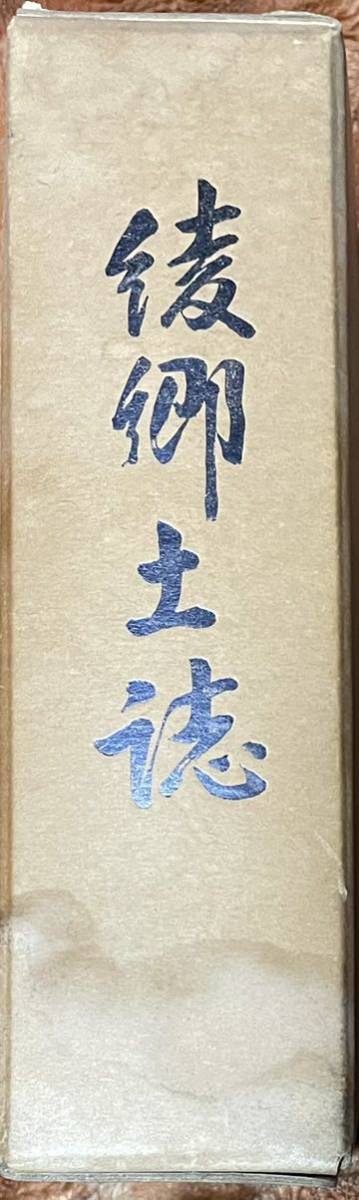 綾郷土誌